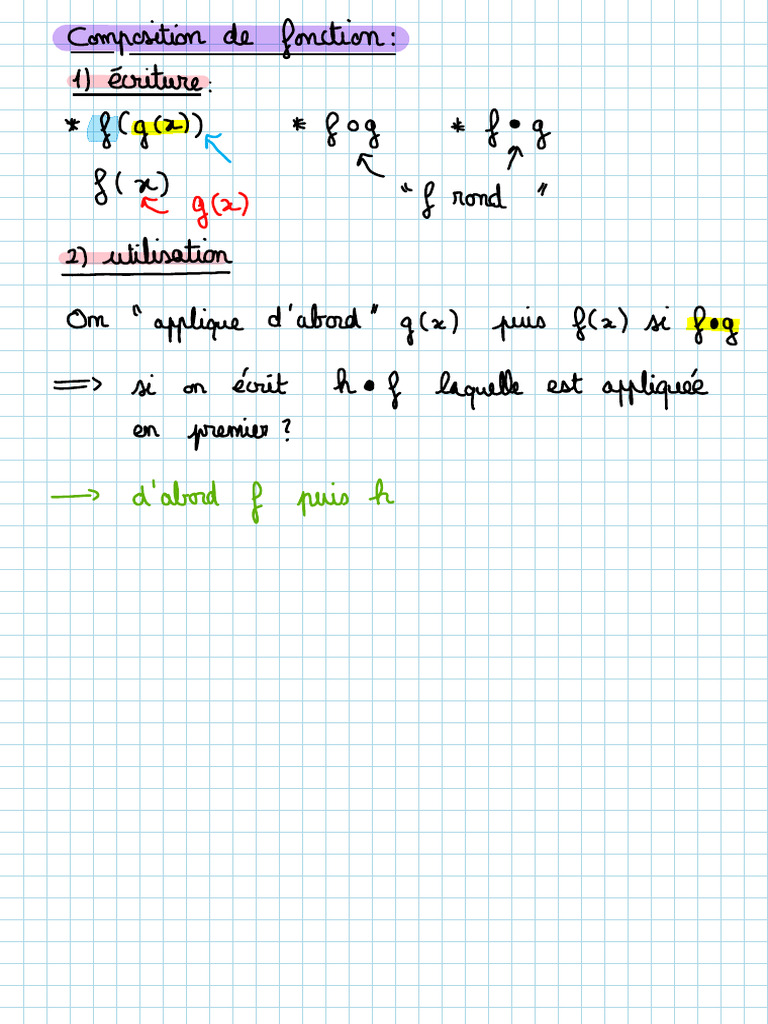 Composition de fonction :
1) écriture :
* f(g(x)) * f∘g * f•g
f(x) g(x) "f rond"
2) utilisation
On "applique d'abord" g(x) puis f(x) si f•g
=> si on écrit h•f laquelle est appliquée
en premier ?
→ d'abord f puis h